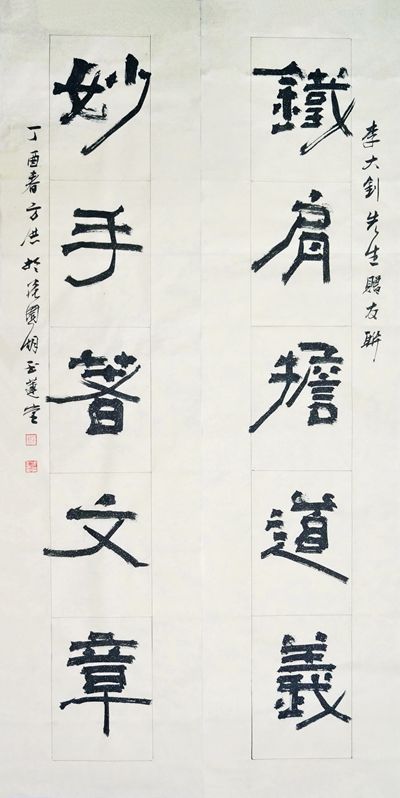 李大釗先生贈友聯
鐵肩擔道義
妙手著文章
丁酉春方洪於